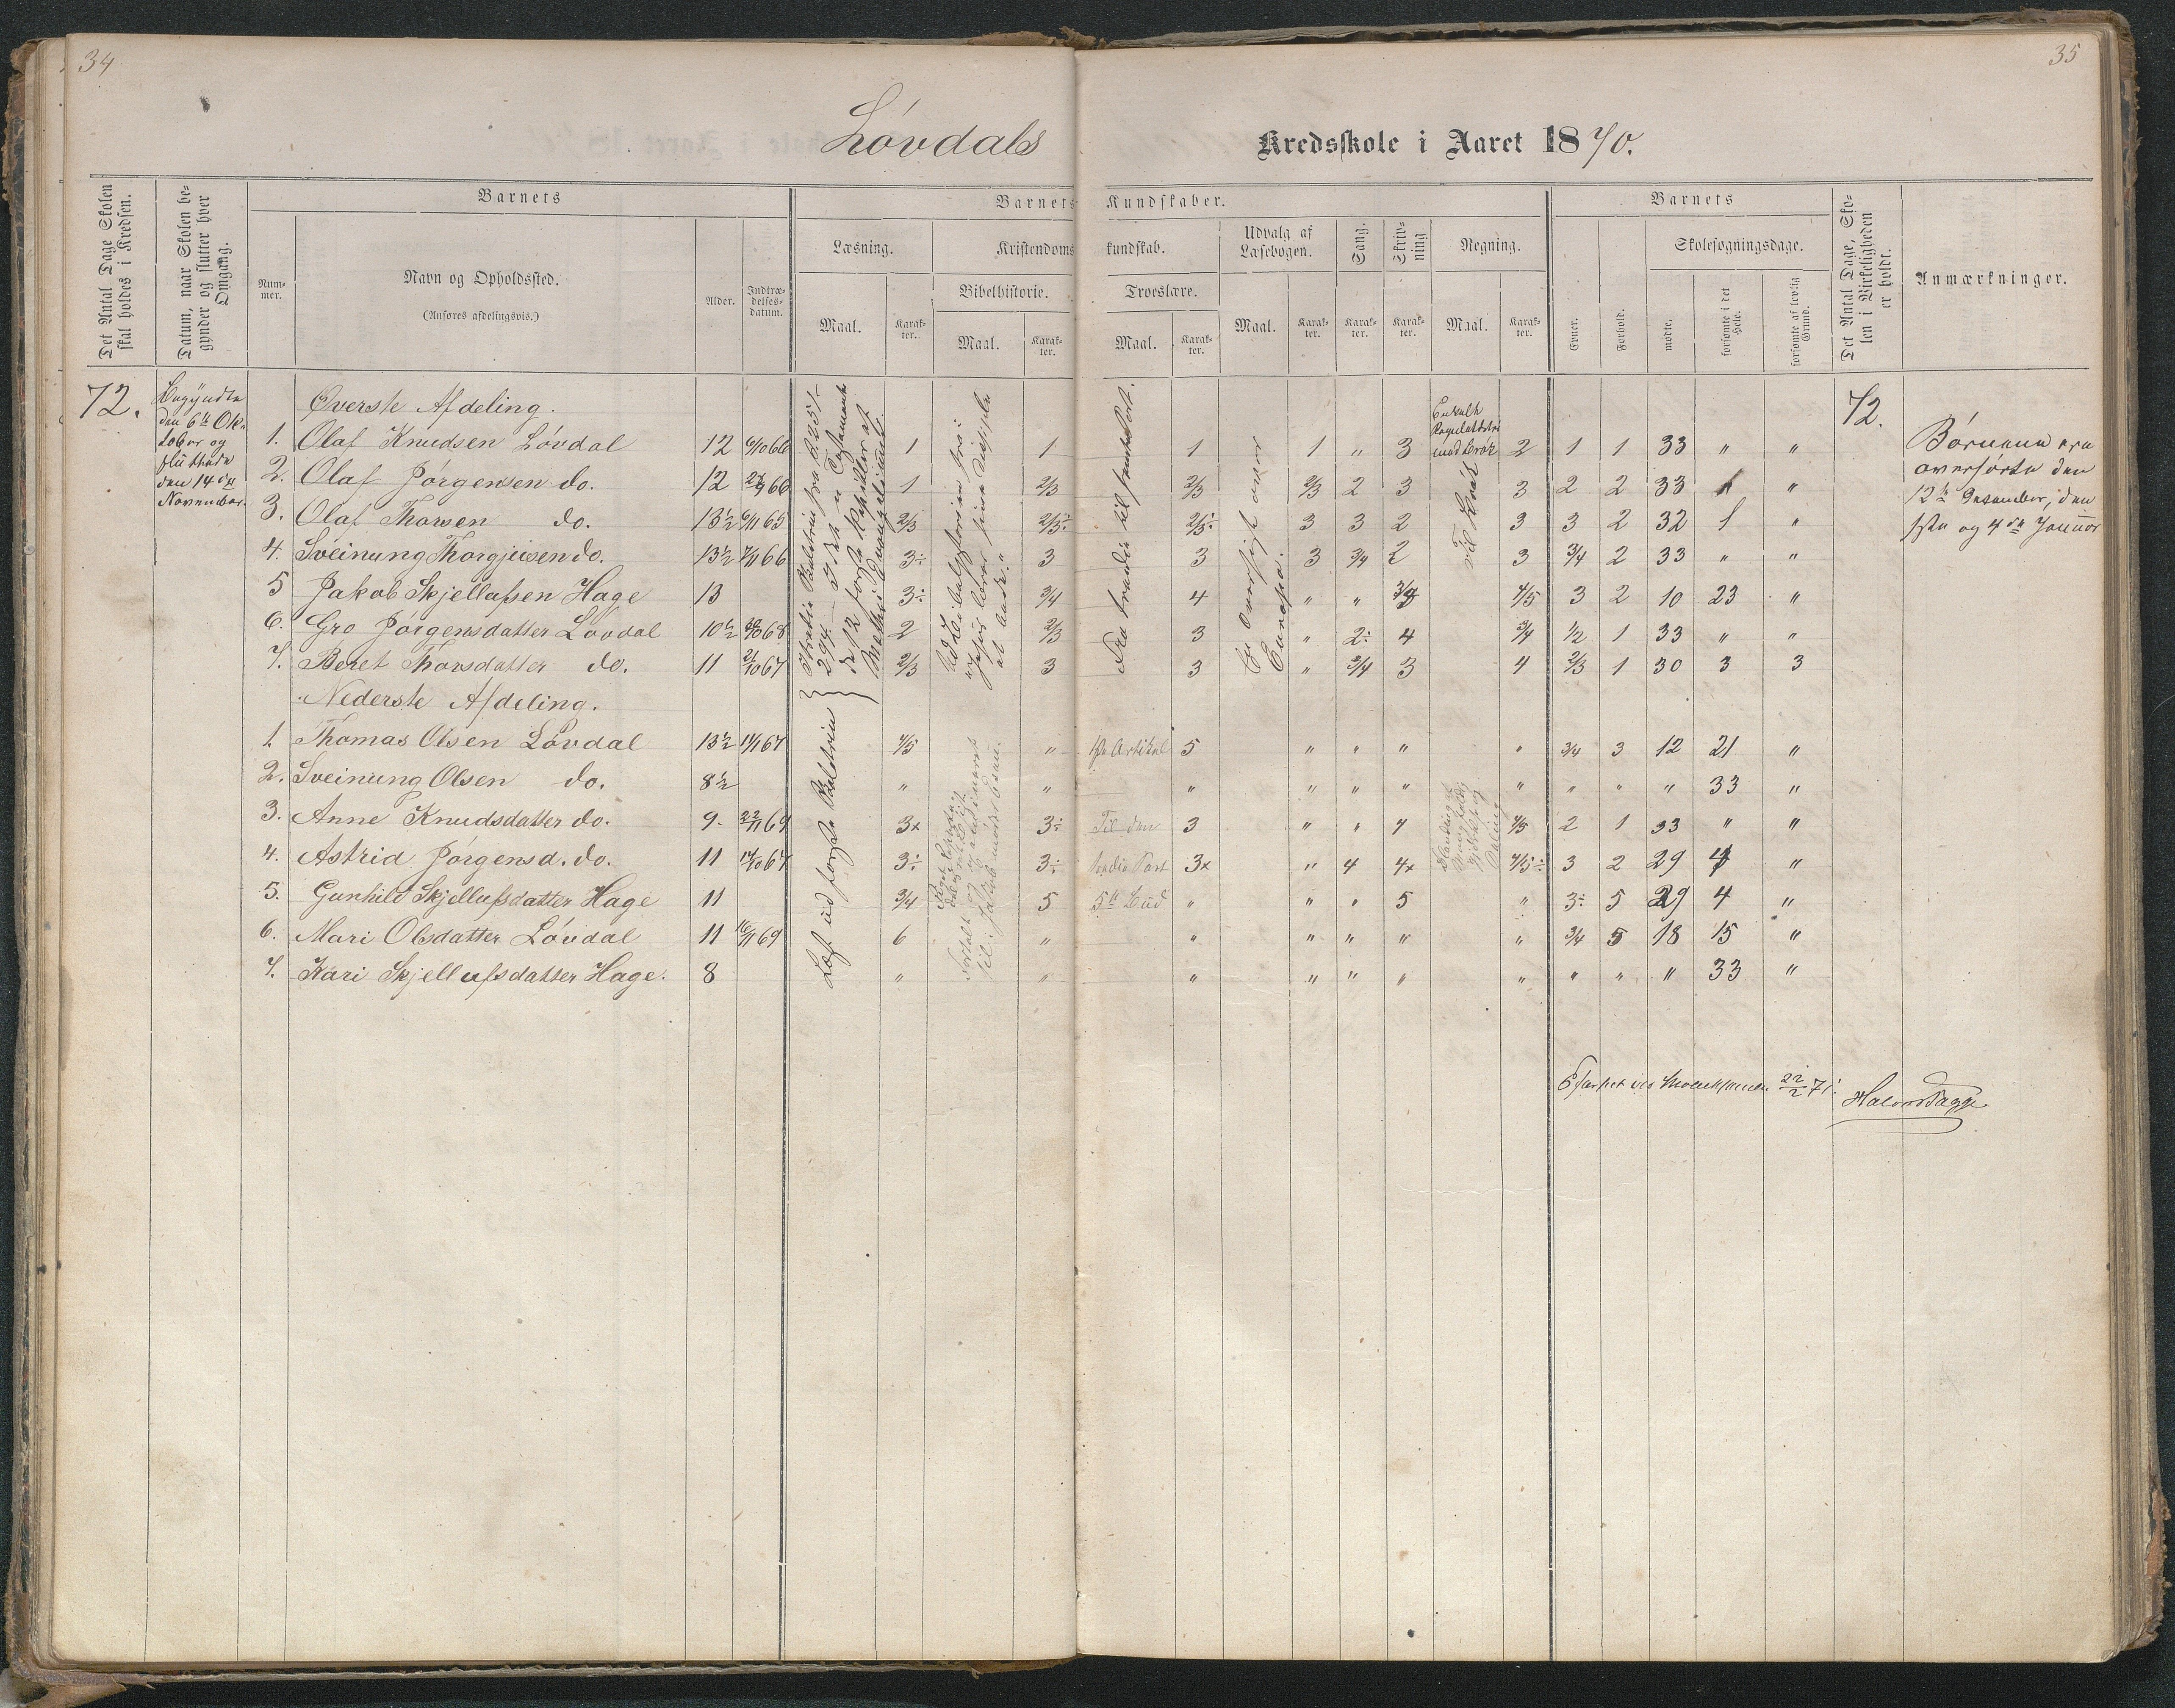 34
35
Lövdals Kredsskole i Aaret 1870.
Det Antal Dage Skolen skal holdes i Kredsen.
Datum, naar Skolen begynder og slutter hver Omgang.
Barnets
Nummer.
Navn og Opholdssted.
(Anføres afdelingsvis.)
Alder.
Indtrædelsesdatum.
Barnets Kundskaber.
Læsning.
Maal.
Karakter.
Kristendomskundskab.
Bibelhistorie.
Maal.
Karakter.
Troeslære.
Maal.
Karakter.
Udvalg af Læsebogen.
Maal.
Karakter.
Sang.
Karakter.
Skrivning
Karakter.
Regning.
Maal.
Karakter.
Barnets
Evner.
Forhold.
Skolesøgningsdage.
mødte.
forsømte i det Hele.
forsømte af lovlig Grund.
Det Antal Dage, Skolen i Virkeligheden er holdt.
Anmærkninger.
72.
Begyndte
den 6te Ok-
tober og
sluttede
den 14de
November.
Øverste Afdeling.
72.
1. Olaf Knudsen Lövdal 12 6/10 66 1 1 1 1 „ 3 2 1 1 33 „ „
2. Olaf Jörgensen do. 12 66 1 2/3 2/3 2/3 2 3 3 2 2 33 „
3. Olaf Thorsen do. 13½ 6/11 65 2/3 2/3÷ 2/3÷ 3 3 2 3 3 2 32 1 „
4. Sveinung Thorgjusen do. 13½ 7/11 66 3÷ 3 3 3 3/4 2 3 3/4 2 33 „ „
5 Jakob Skjellufsen Hage 13 3÷ 3/4 4 „ „ 4/5 3 2 10 23 „
6. Gro Jörgensdatter Lövdal 10½ 68 2 2/3 3 „ 2÷ 4 3/4 1/2 1 33 „ „
7. Beret Thorsdatter do. 11 2/10 67 2/3 3 3 „ 3/4 3 4 2/3 1 30 3 3
Nederste Afdeling.
1. Thomas Olsen Lövdal 13½ 67 4/5 „ 1ste Artikel 5 „ „ „ „ 3/4 3 12 21 „
2. Sveinung Olsen do. 8½ „ „ „ „ „ „ „ „ „ „ 33 „
3. Anne Knudsdatter do. 9. 22/11 69 3x 3÷ Til den 3 „ „ 4/5 2 1 33 „ „
4. Astrid Jörgensd. do. 11 67 3÷ 3÷ tredie Part 3x „ 4 4x 4/5÷ 3 2 29 4 „
5. Gunhild Skjellufsdatter Hage 11 3/4 5 5te Bud „ „ „ 5 „ 3÷ 5 29 4 „
6. Mari Olsdatter Lövdal 11 16/11 69 6 „ „ „ „ „ „ 3/4 5 18 15 „
7. Kari Skjellufsdatter Hage. 8 „ „ „ „ „ „ „ „ „ „ 33 „
Enkelt
Reguladetri
med Brök
til Brök
Fra tredie til femte Part.
En Oversigt over
Europa.
Læst ud forste Balderien
Börnene ere
overhörte den
12te Desember, den
1ste og 4de Januar
22/2 71.